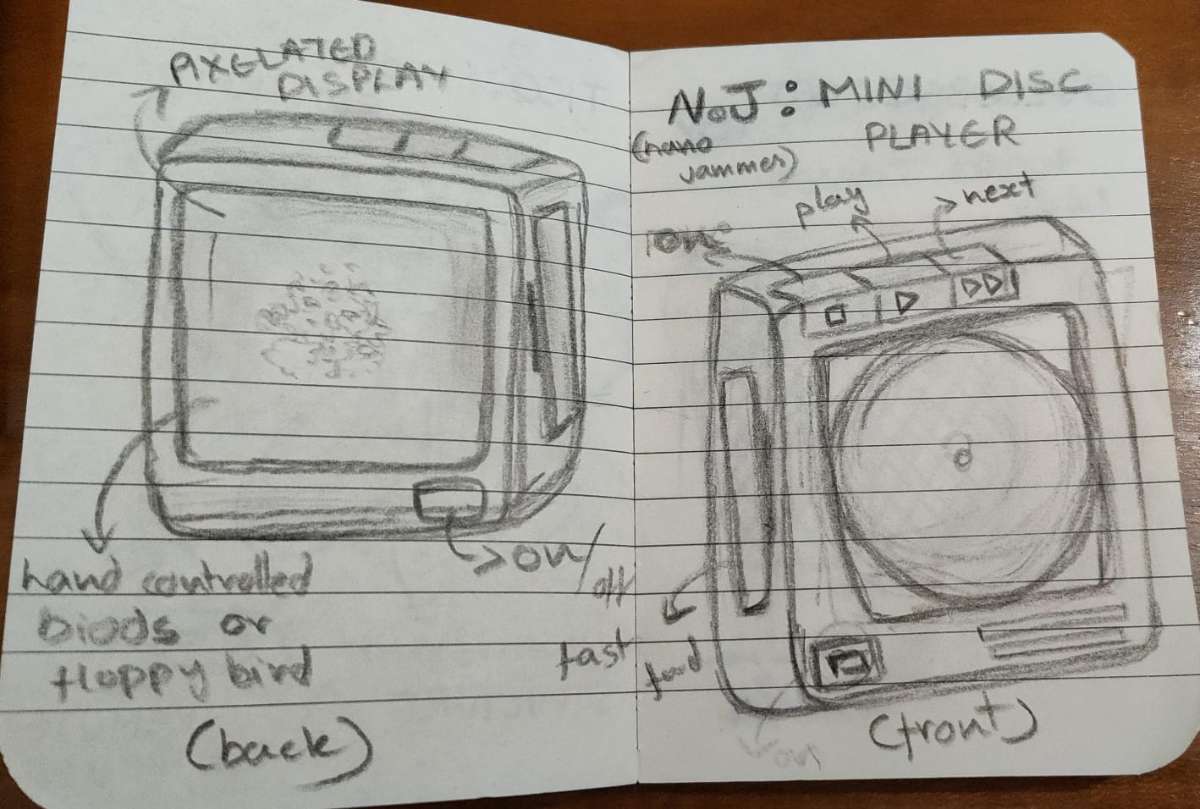 PIXELATED
DISPLAY
on/
off
hand controlled
biods or
floppy bird
(back)
NoJ: MINI DISC
PLAYER
(nano
jammer)
play
next
on
fast
fwd
on
(front)